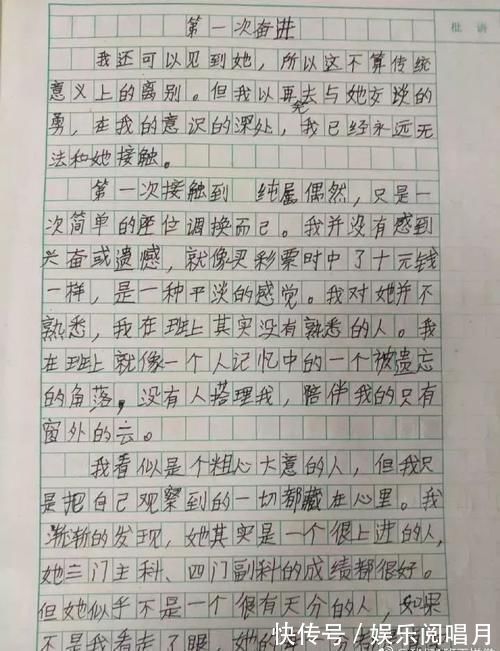 第一次奋进
批语
我还可以见到她，所以这不算传统
意义上的离别。但我以再去与她交谈的
勇，在我的意识的深处，我已经永远无
法和她接触。
第一次接触到 纯属偶然，只是一
次简单的座位调换而已。我并没有感到
兴奋或遗憾，就像买彩票时中了十元钱
一样，是一种平淡的感觉。我对她并不
熟悉，我在班上其实没有熟悉的人。我
在班上就像一个人记忆中的一个被遗忘
的角落，没有人搭理我，陪伴我的只有
窗外的云。
我看似是个粗心大意的人，但我只
是把自己观察到的一切都藏在心里。我
渐渐的发现，她其实是一个很上进的人，
她三门主科、四门副科的成绩都很好。
但她似乎不是一个很有天分的人，如果
不是我看走了眼，她的
快传号/娱乐阅唱月